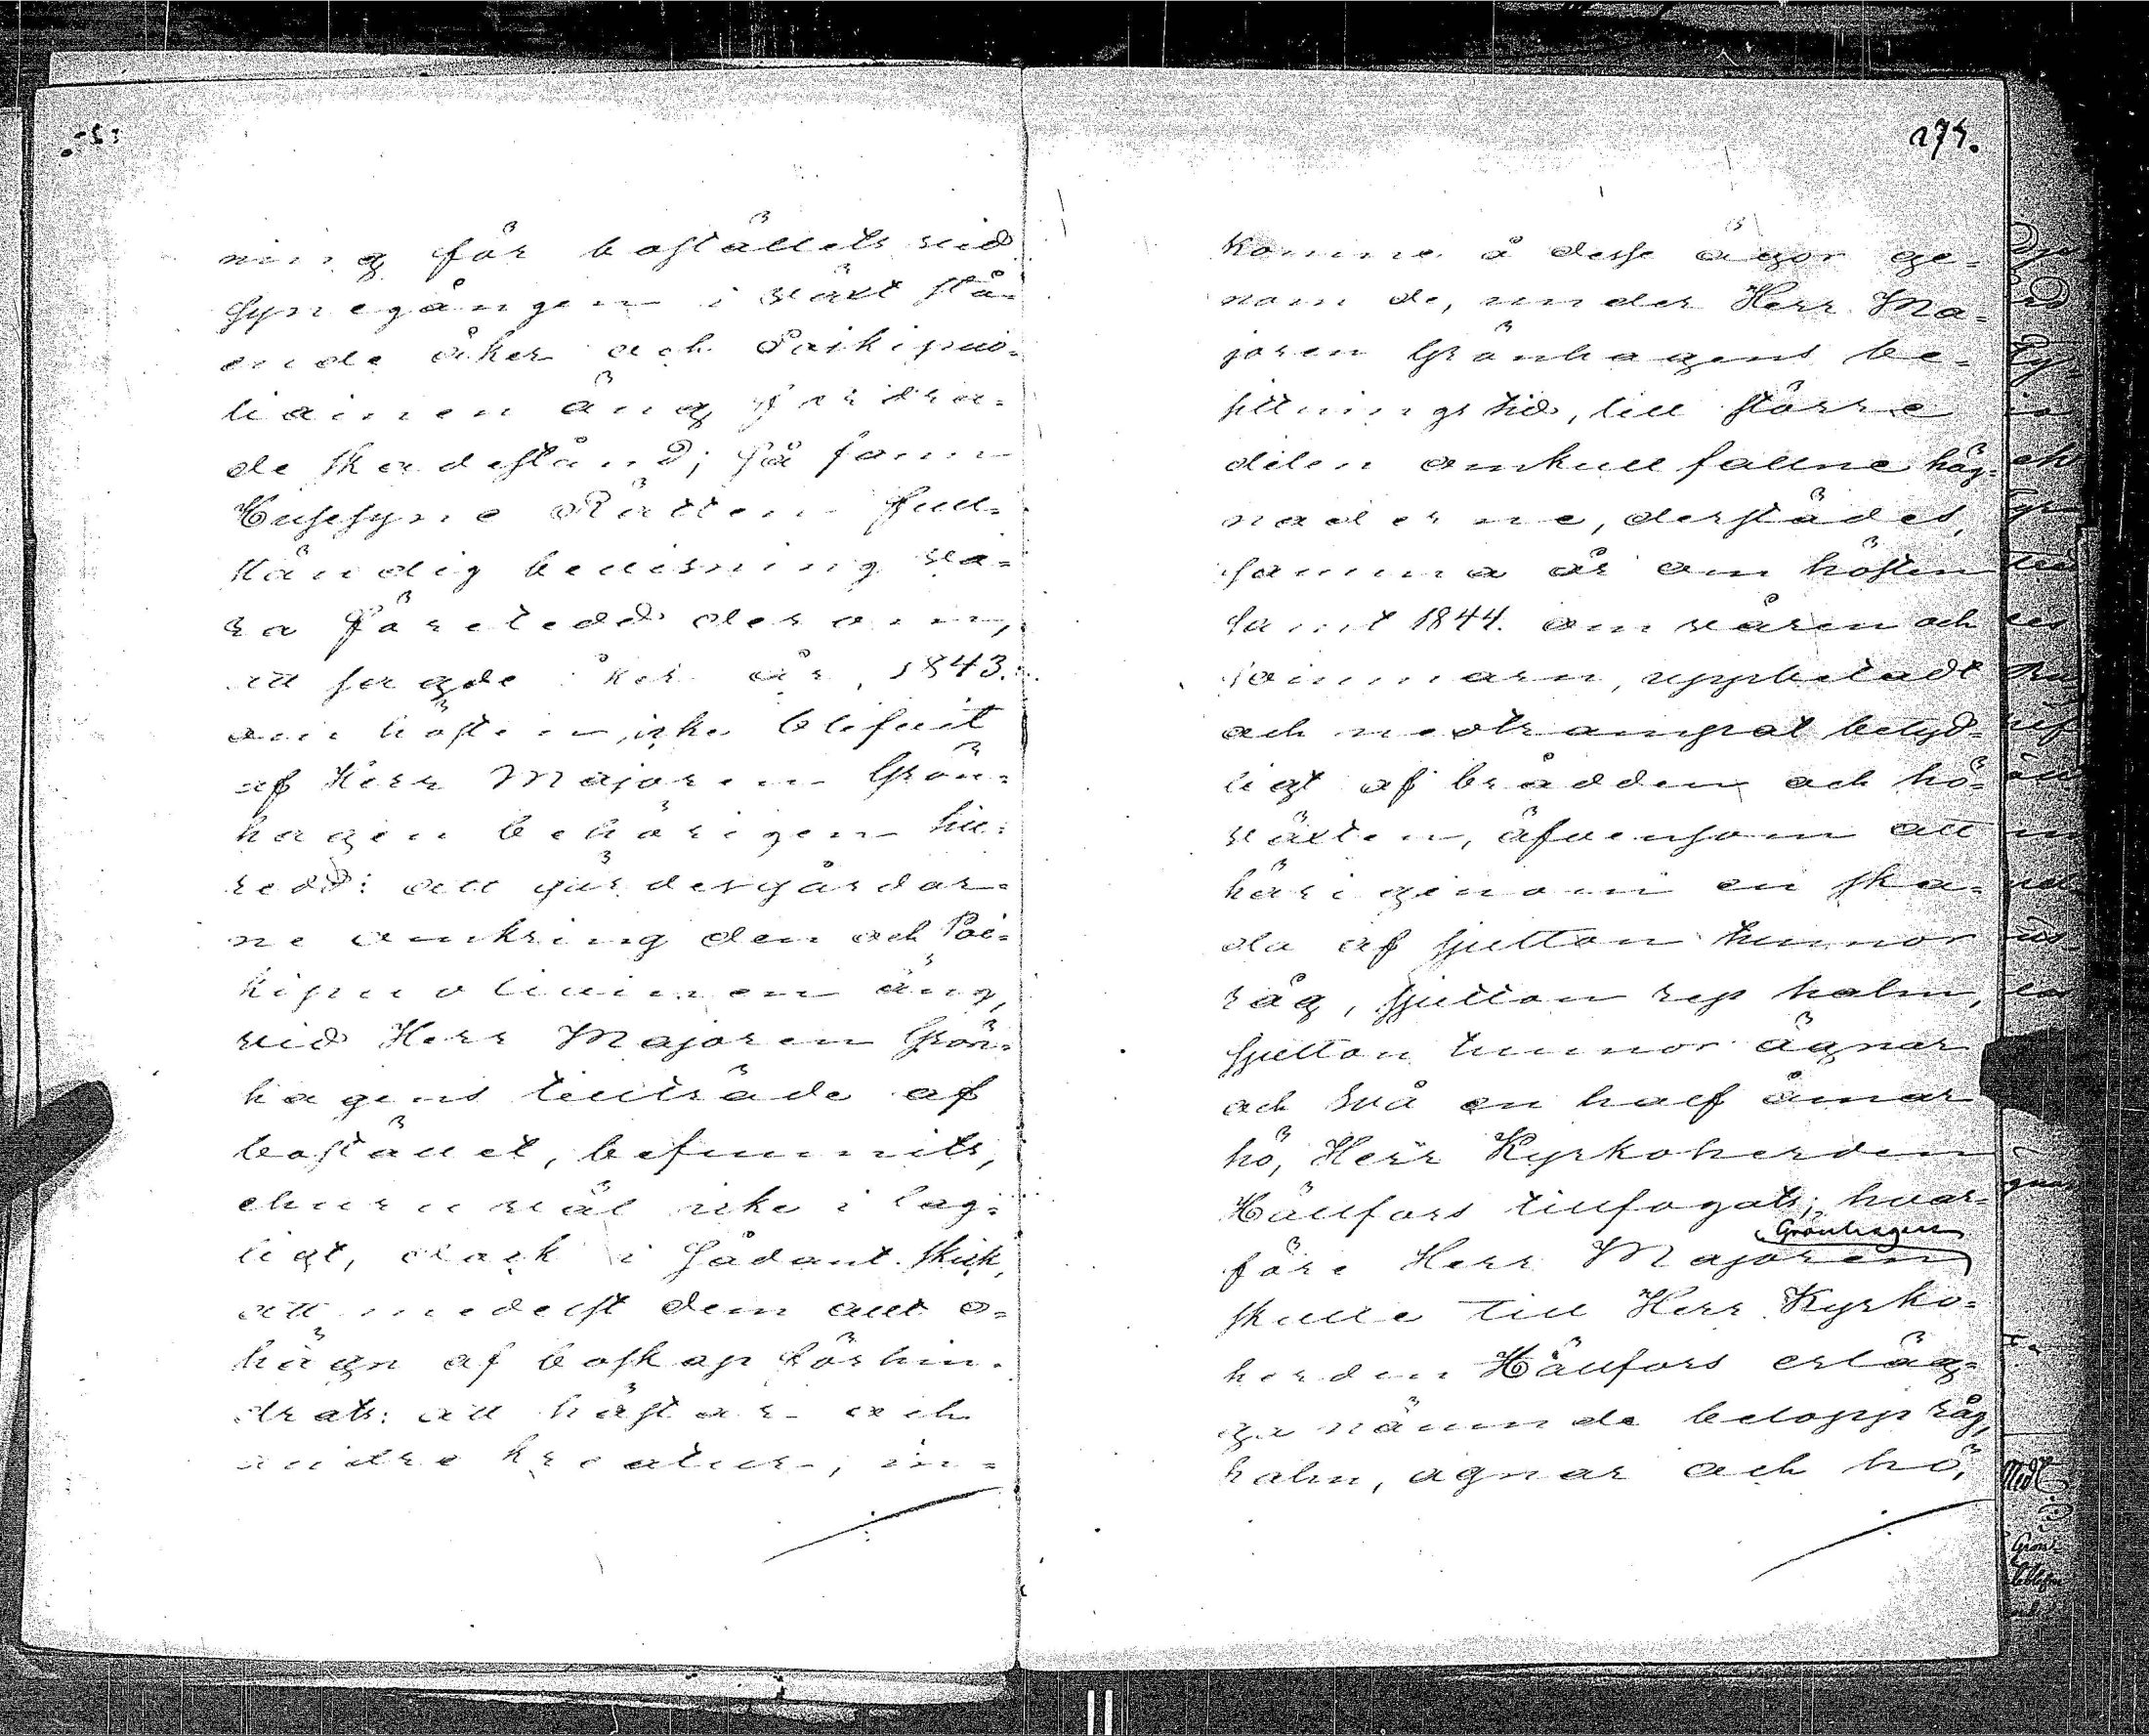 ning för boställets vid
synegången i växt stå-
ende åker och Paikipuo-
liainen äng fordra-
de skadestånd; så fann
Husesyne Rätten full-
ständig bevisning va-
ra företedd derom,
att sagde åker år 1843.
om hösten icke blifvit
af Herr Majoren Grön-
hagen behörigen till-
redd: att gärdesgårdar-
ne omkring den och Pai-
kipuoliainen äng,
vid Herr Majoren Grön-
hagens tillträde af
bostället, befunnits,
churuväl icke i lag-
ligt, dock i sådant skick,
att medelst dem allt o-
hägn af boskap förhin-
drats: att hästar och
andre kreatur, in-
275.
komne å desse ägor ge-
nom de, under Herr Ma-
joren Grönhagens be-
sittningstid, till större
delen omkull fallne häg-
naderne, derstädes,
samma år om hösten
samt 1844. om våren och
sommarn, uppbetadt
och nedtrampat betyd-
ligt af brådden och hö-
växten, äfvensom att
härigenom en ska-
da af sjutton tunnor
råg, sjutton rep halm,
sjutton tunnor agnar
och två en half åmar
hö, Herr Kyrkoherden
Hällfors tillfogats; hvar-
före Herr Majoren Grönhagen
skulle till Herr Kyrko-
herden Hällfors erläg-
ga nämnde belopp råg,
halm, agnar och hö,